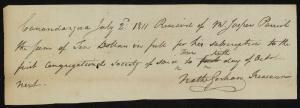 Canandaigua July 2d 1811 Received of Mr Jasper Parrish
the sum of Ten Dollars in full for his subscription to the
first Congregational Society of
day of Oct
next.
Treasurer